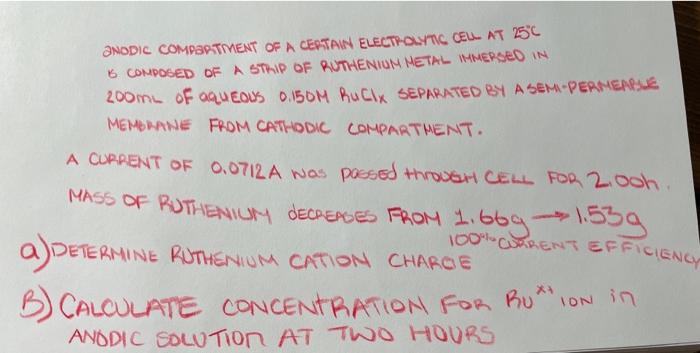 ANODIC COMPARTMENT OF A CERTAIN ELECTROLYTIC CELL AT 25°C
IS COMPOSED OF A STRIP OF RUTHENIUM METAL IMMERSED IN
200mL OF aqueous 0.150M RuClx SEPARATED BY A SEMI-PERMEABLE
MEMBRANE FROM CATHODIC COMPARTMENT.
A CURRENT OF 0.0712A was passed through CELL FOR 2.00h.
MASS OF RUTHENIUM decreases FROM 1.66g → 1.53g
100% CURRENT EFFICIENCY
a) DETERMINE RUTHENIUM CATION CHARGE
B) CALCULATE CONCENTRATION FOR Ru^x+ ION in
ANODIC SOLUTION AT TWO HOURS